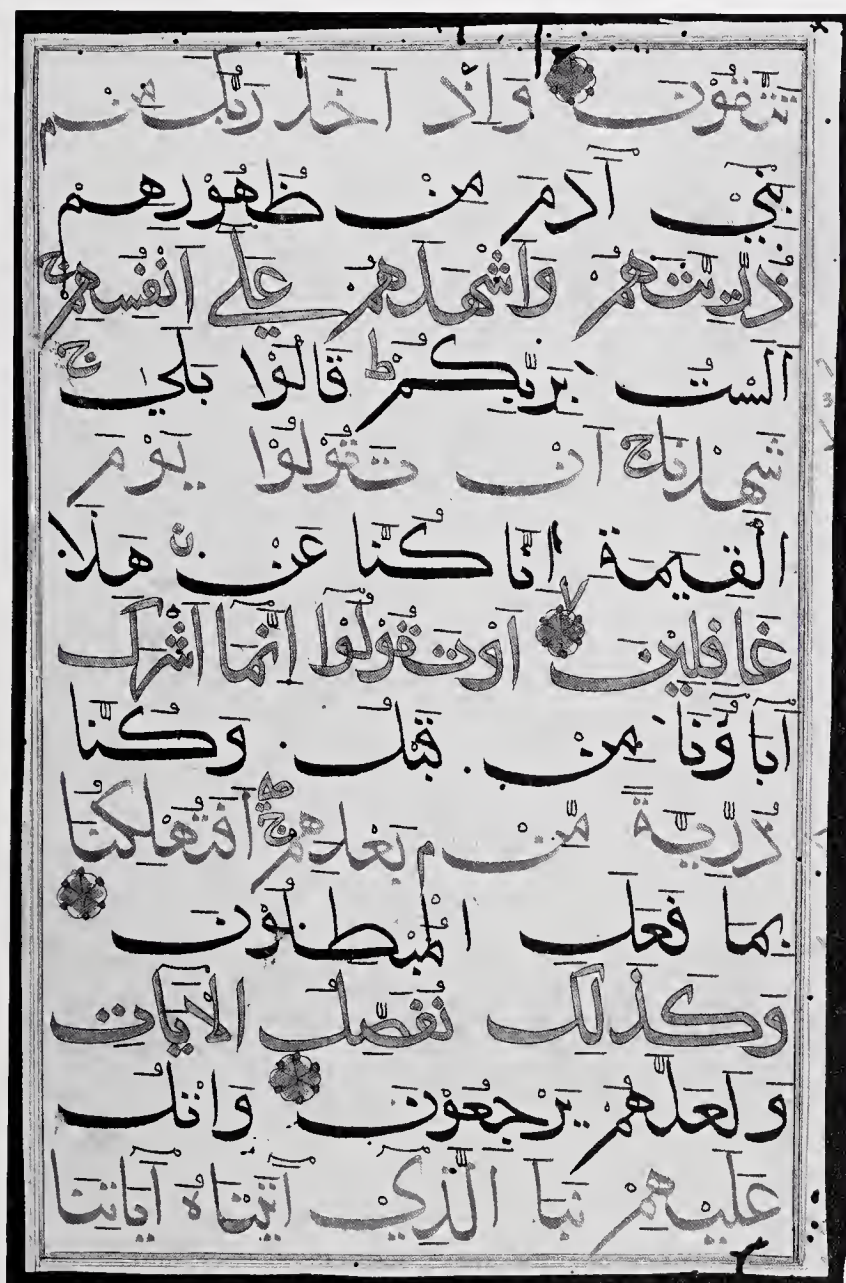 تَتَّقُونَ وَاِذْ اَخَذَ رَبُّكَ مِنْ م
بَنِيْ آدَمَ مِنْ ظُهُوْرِهِمْ
ذُرِّيَّتَهُمْ وَاَشْهَدَهُمْ عَلٰى اَنْفُسِهِمْ ج
اَلَسْتُ بِرَبِّكُمْ ط قَالُوْا بَلٰى ج
شَهِدْنَا ج اَنْ تَقُوْلُوْا يَوْمَ
الْقِيٰمَةِ اِنَّا كُنَّا عَنْ هٰذَا
غَافِلِيْنَ اَوْ تَقُوْلُوْا اِنَّمَا اَشْرَكَ
اٰبَاؤُنَا مِنْ قَبْلُ وَكُنَّا
ذُرِّيَّةً مِّنْ م بَعْدِهِمْ ج اَفَتُهْلِكُنَا
بِمَا فَعَلَ الْمُبْطِلُوْنَ
وَكَذٰلِكَ نُفَصِّلُ الْاٰيَاتِ
وَلَعَلَّهُمْ يَرْجِعُوْنَ وَاتْلُ
عَلَيْهِمْ نَبَاَ الَّذِيْ اٰتَيْنَاهُ اٰيَاتِنَا